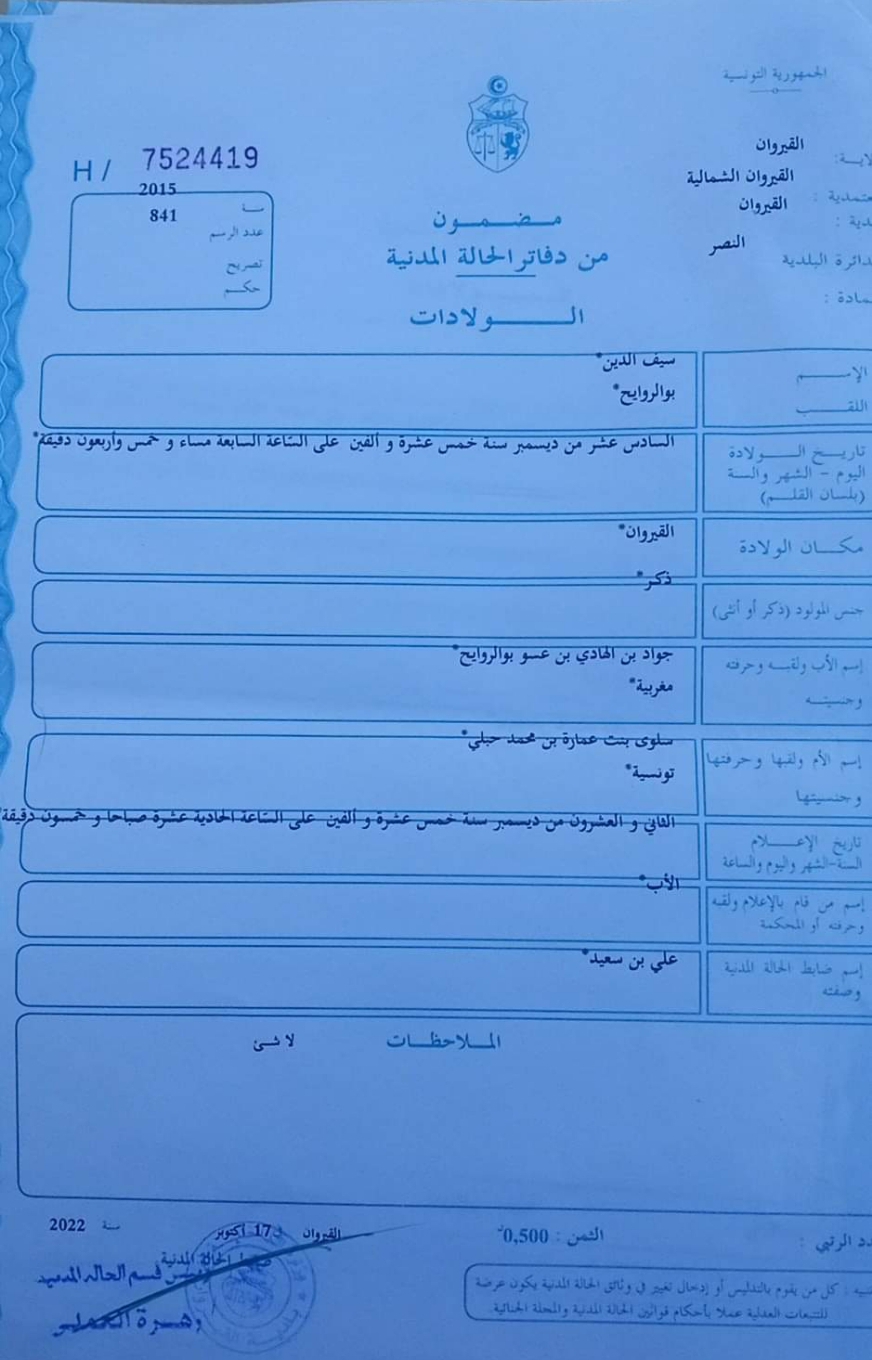 الجمهورية التونسية
القيروان
معتمدية : القيروان الشمالية
القيروان
الدائرة البلدية النصر
H/ 7524419
سنة 2015
عدد الرسم 841
تصريح
حكم
مضمون
من دفاتر الحالة المدنية
الولادات
الإسم سيف الدين*
اللقب بوالروايح*
تاريخ الولادة
اليوم - الشهر والسنة
(بلسان القلم)
السادس عشر من ديسمبر سنة خمس عشرة و ألفين على الساعة السابعة مساء و خمس وأربعون دقيقة*
مكان الولادة القيروان*
جنس المولود (ذكر أو أنثى) ذكر*
إسم الأب ولقبه وحرفته جواد بن الهادي بن عسو بوالروايح*
وجنسيته مغربية*
إسم الأم ولقبها وحرفتها سلوى بنت عمارة بن محمد حبلي*
وجنسيتها تونسية*
تاريخ الإعلام
السنة-الشهر واليوم والساعة
الثاني و العشرون من ديسمبر سنة خمس عشرة و ألفين على الساعة الحادية عشرة صباحا و خمسون دقيقة*
إسم من قام بالإعلام ولقبه
وحرفته أو المحكمة
الأب*
إسم ضابط الحالة المدنية
وصفته
علي بن سعيد*
الملاحظات لا شئ
الثمن : 0,500
القيروان في 17 أكتوبر سنة 2022
ضابط الحالة المدنية
كل من يقوم بالتدليس أو إدخال تغيير في وثائق الحالة المدنية يكون عرضة
للتتبعات العدلية عملا بأحكام قوانين الحالة المدنية والمجلة الجنائية.